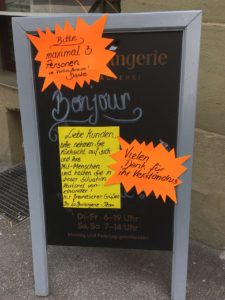 Bitte
maximal 3
Personen
Danke
ingerie
Bonjour
Liebe Kunden,
bitte nehmen Sie
Rücksicht auf sich
und Ihre
Mit-Menschen
und halten Sie in
dieser Situation
Abstand von-
einander!
Mit freundlichen Grüßen
Vielen
Dank für
ihr Verständnis
Di-Fr 6-19 Uhr
Sa-So 7-14 Uhr
Montag und Feiertag geschlossen